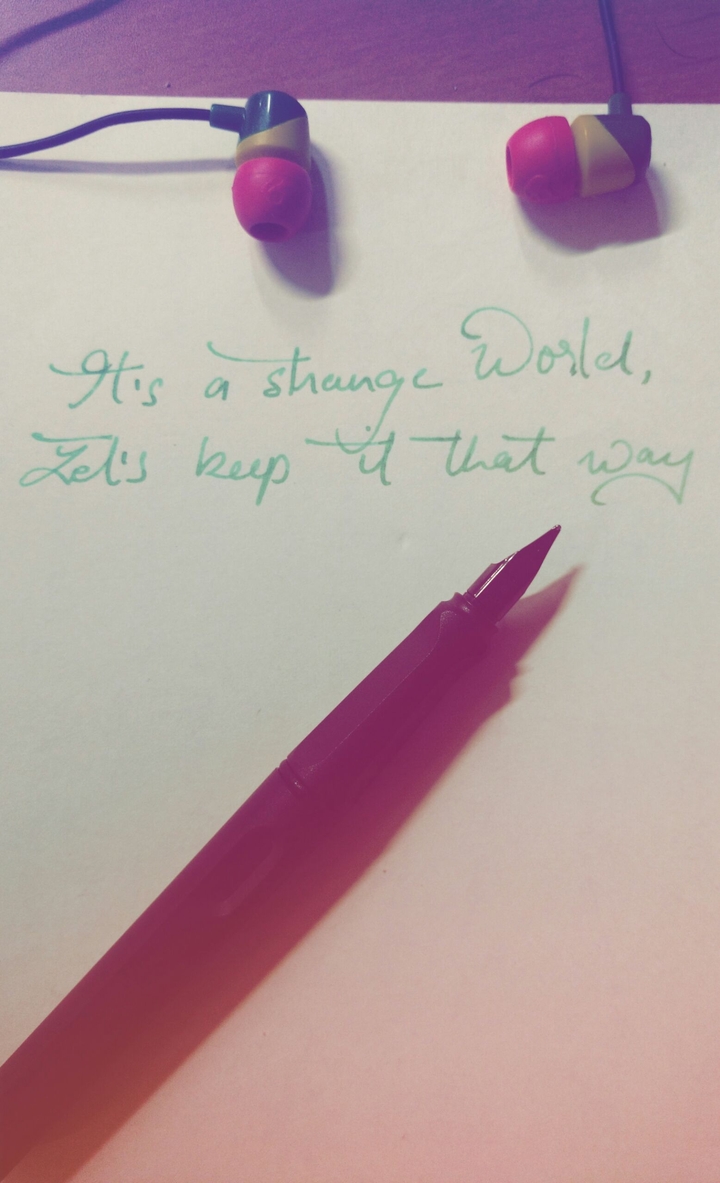 It's a strange World,
Let's keep it that way